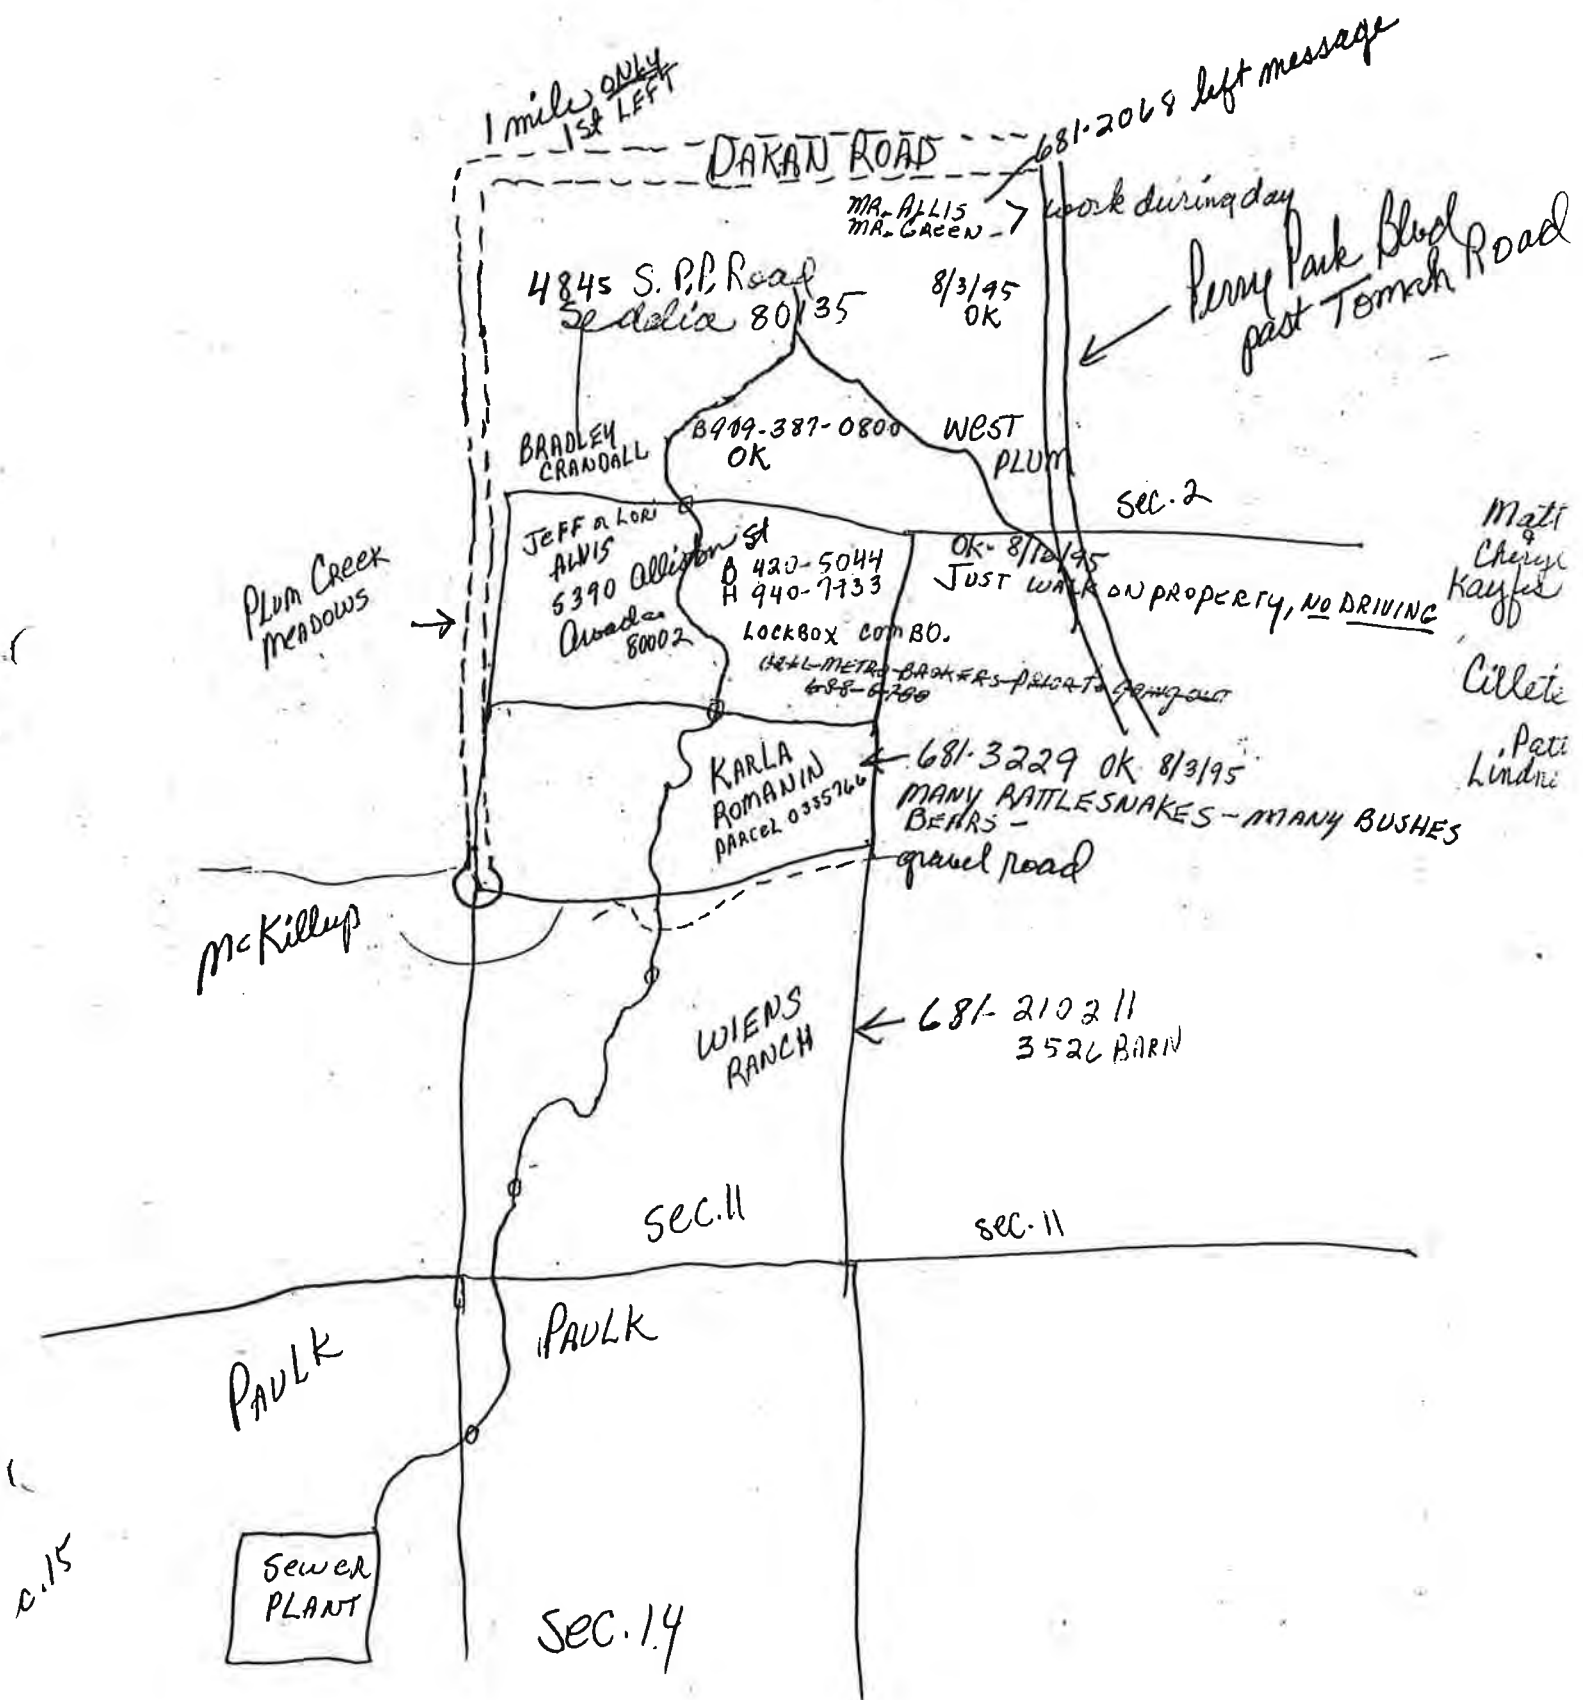 1 mile ONLY
1st LEFT
DAKAN ROAD
681-2068 left message
MR. ALLIS
MR. GREEN - > work during day
Perry Park Blvd
past Tomah Road
4845 S. P.P. Road
Sedalia 80135
8/3/95
OK
BRADLEY
CRANDALL
B 909-387-0800
OK
WEST
PLUM
Sec. 2
JEFF or LORI
ALVIS
5390 Allison St
Arvada
80002
B 420-5044
H 940-7933
OK- 8/10/95
JUST WALK ON PROPERTY, NO DRIVING
LOCKBOX COMBO.
CALL METRO BROKERS PRIOR TO going out
Matt
&
Cheryl
Kayfes
Cillete
Pati
Lindne
PLUM CREEK
MEADOWS
KARLA
ROMANIN
PARCEL 0335766
681-3229 OK 8/3/95
MANY RATTLESNAKES - MANY BUSHES
BEARS -
gravel road
McKillup
WIENS
RANCH
681-2102 11
3526 BARN
Sec. 11
Sec. 11
PAULK
PAULK
c. 15
SEWER
PLANT
Sec. 14